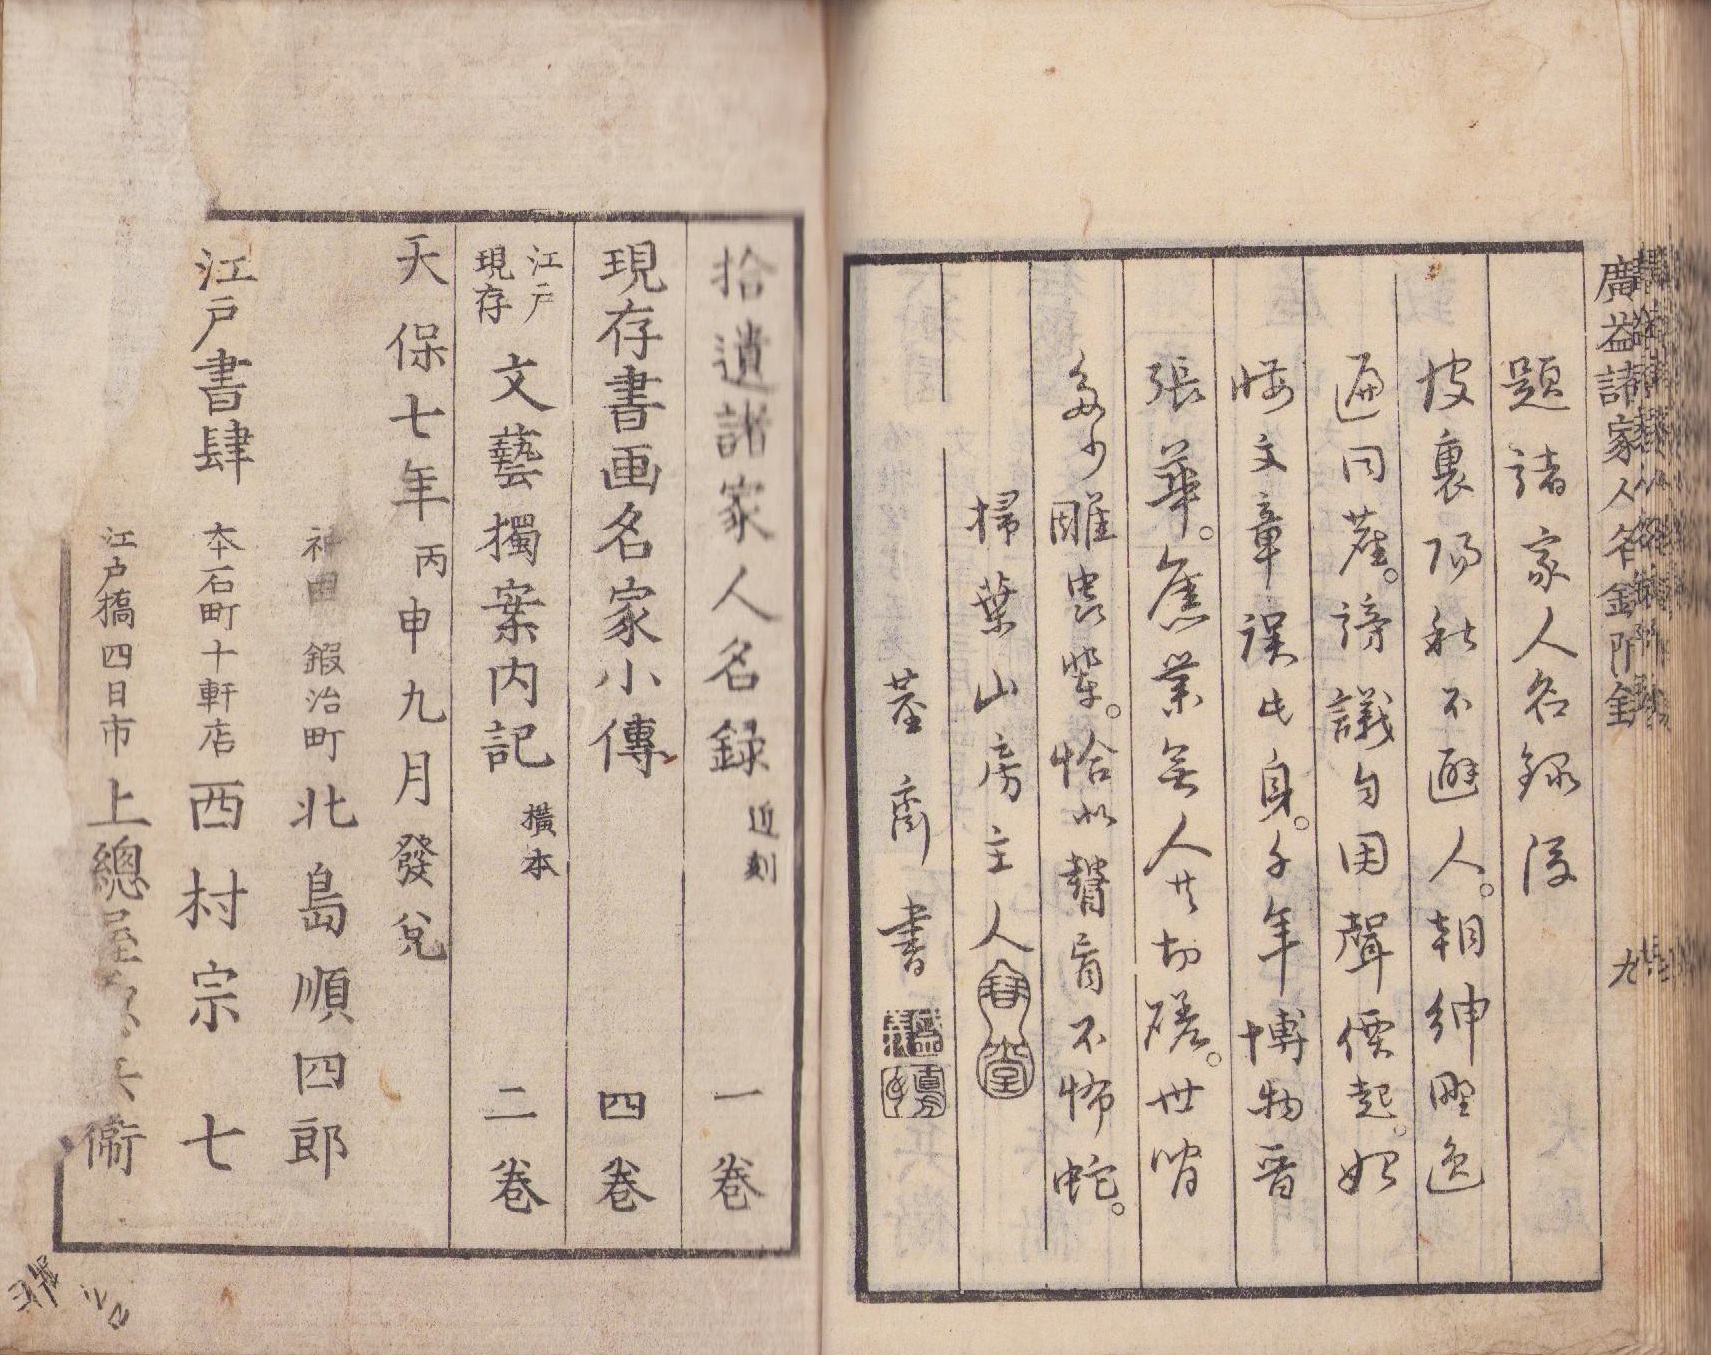 廣益諸家人名録附録
九
題諸家人名録後
皮裏陽秋不避人。朝紳野逸
遍同塵。謗議勾因聲價起。
文章誤此身。千年博物晋
張華。舊業無人共切磋。世
多少雕蟲輩。恰似瞽盲不怖蛇。
掃葉山房主人
春堂
荃齋書
拾遺諸家人名録 近刻 一巻
現存書画名家小傳 四巻
江戸現存 文藝獨案内記 横本 二巻
天保七年丙申九月發兌
江戸書肆
神田鍜治町 北島順四郎
本石町十軒店 西村宗七
江戸橋四日市 上總屋 兵衞